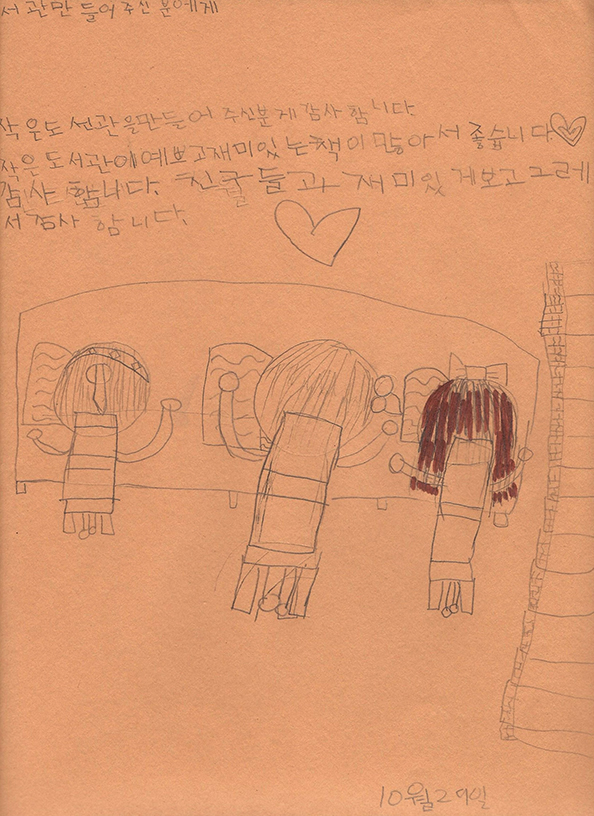 서관만들어주신분에게
작은도선관을만들어주신분게감사합니다.
작은도서관에예쁘고재미있는책이많아서좋습니다
감사합니다. 친굴들과재미있게보고그르게
서감사합니다.
10월29일